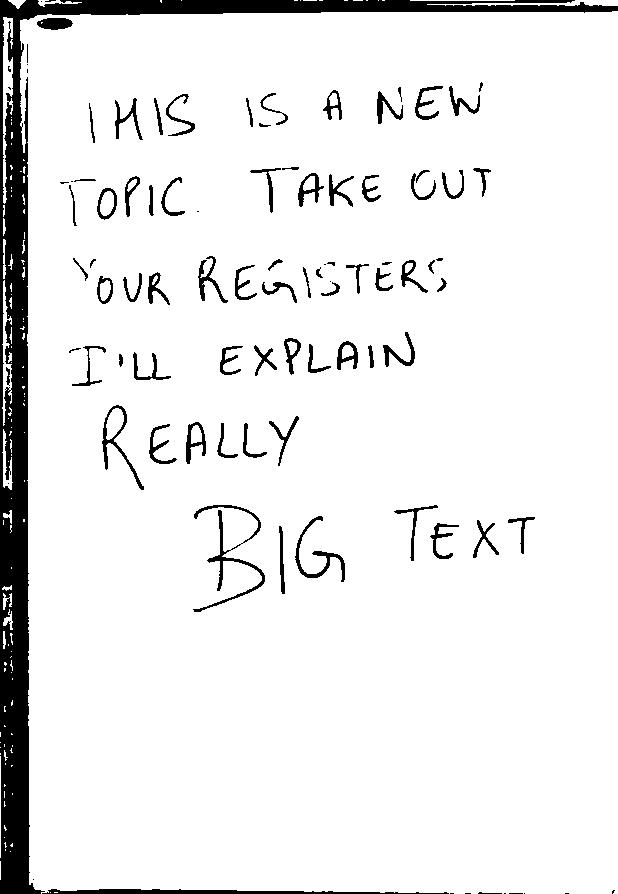 THIS IS A NEW
TOPIC. TAKE OUT
YOUR REGISTERS
I'LL EXPLAIN
REALLY
BIG TEXT